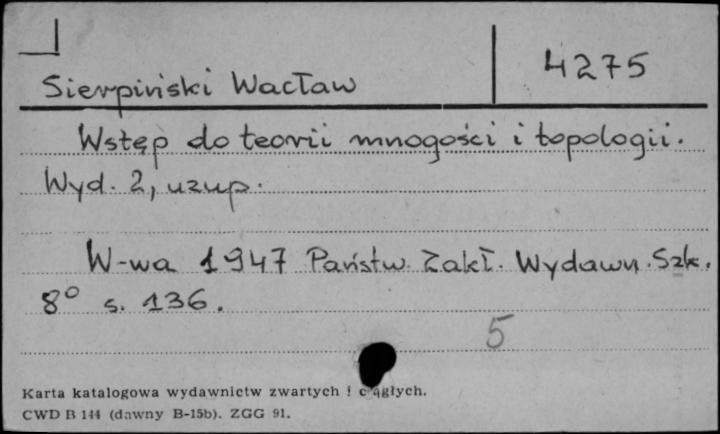 4275
Sierpiński Wacław
Wstęp do teorii mnogości i topologii.
Wyd. 2, uzup.
W-wa 1947 Państw. Zakł. Wydawn. Szk.
8° s. 136.
5
Karta katalogowa wydawnictw zwartych i ciągłych.
CWD B 144 (dawny B-15b). ZGG 91.